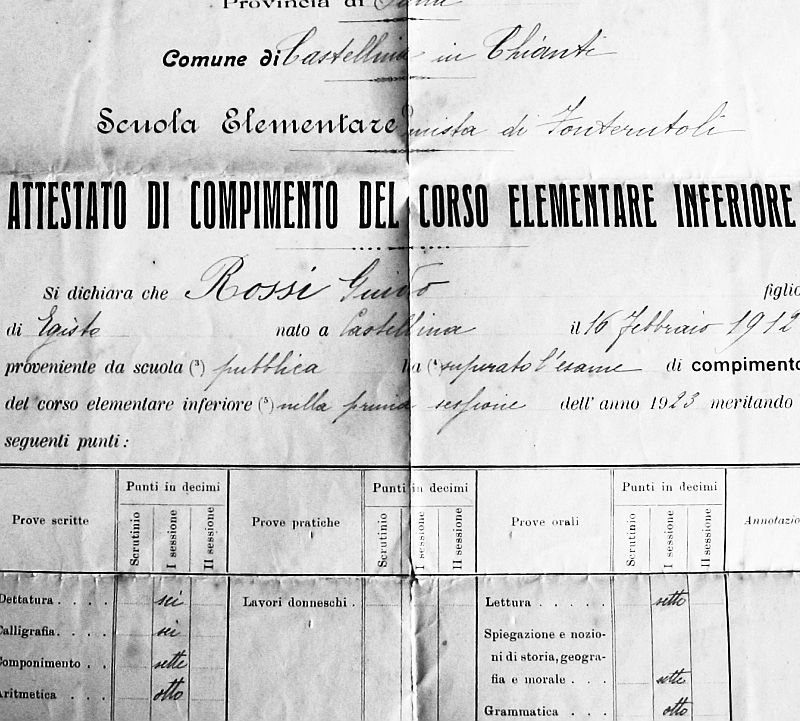 Provincia di Siena
Comune di Castellina in Chianti
Scuola Elementare mista di Fonterutoli
ATTESTATO DI COMPIMENTO DEL CORSO ELEMENTARE INFERIORE
Si dichiara che Rossi Guido figlio
di Egisto nato a Castellina il 16 Febbraio 1912
proveniente da scuola (3) pubblica ha (4 superato l'esame di compimento
del corso elementare inferiore (5) nella prima sessione dell'anno 1923 meritando
seguenti punti:
Prove scritte Punti in decimi Prove pratiche Punti in decimi Prove orali Punti in decimi Annotazio
Scrutinio I sessione II sessione Scrutinio I sessione II sessione Scrutinio I sessione II sessione
Dettatura . . . . sei Lavori donneschi . Lettura . . . . . sette
Calligrafia. . . . sei Spiegazione e nozio-
Componimento . . sette ni di storia, geogra-
fia e morale . . . sette
Aritmetica . . . . otto Grammatica . . . . otto